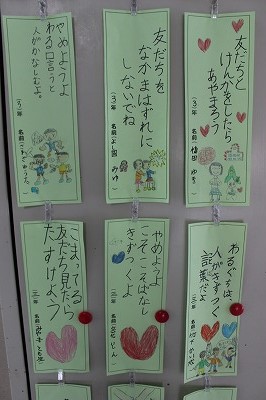 友だちと
けんかをしたら
あやまろう
(3)年 名前
友だちを
なかまはずれに
しないでね
(3)年 名前
やめようよ
わる口言うと
人がかなしむよ。
(3)年 名前
わるぐちは、
人がきずつく
言葉だよ
(三)年 名前
やめようよ
こそこそばなし
きずつくよ
(三)年 名前
こまってる
友だち見たら
たすけよう
(三)年 名前